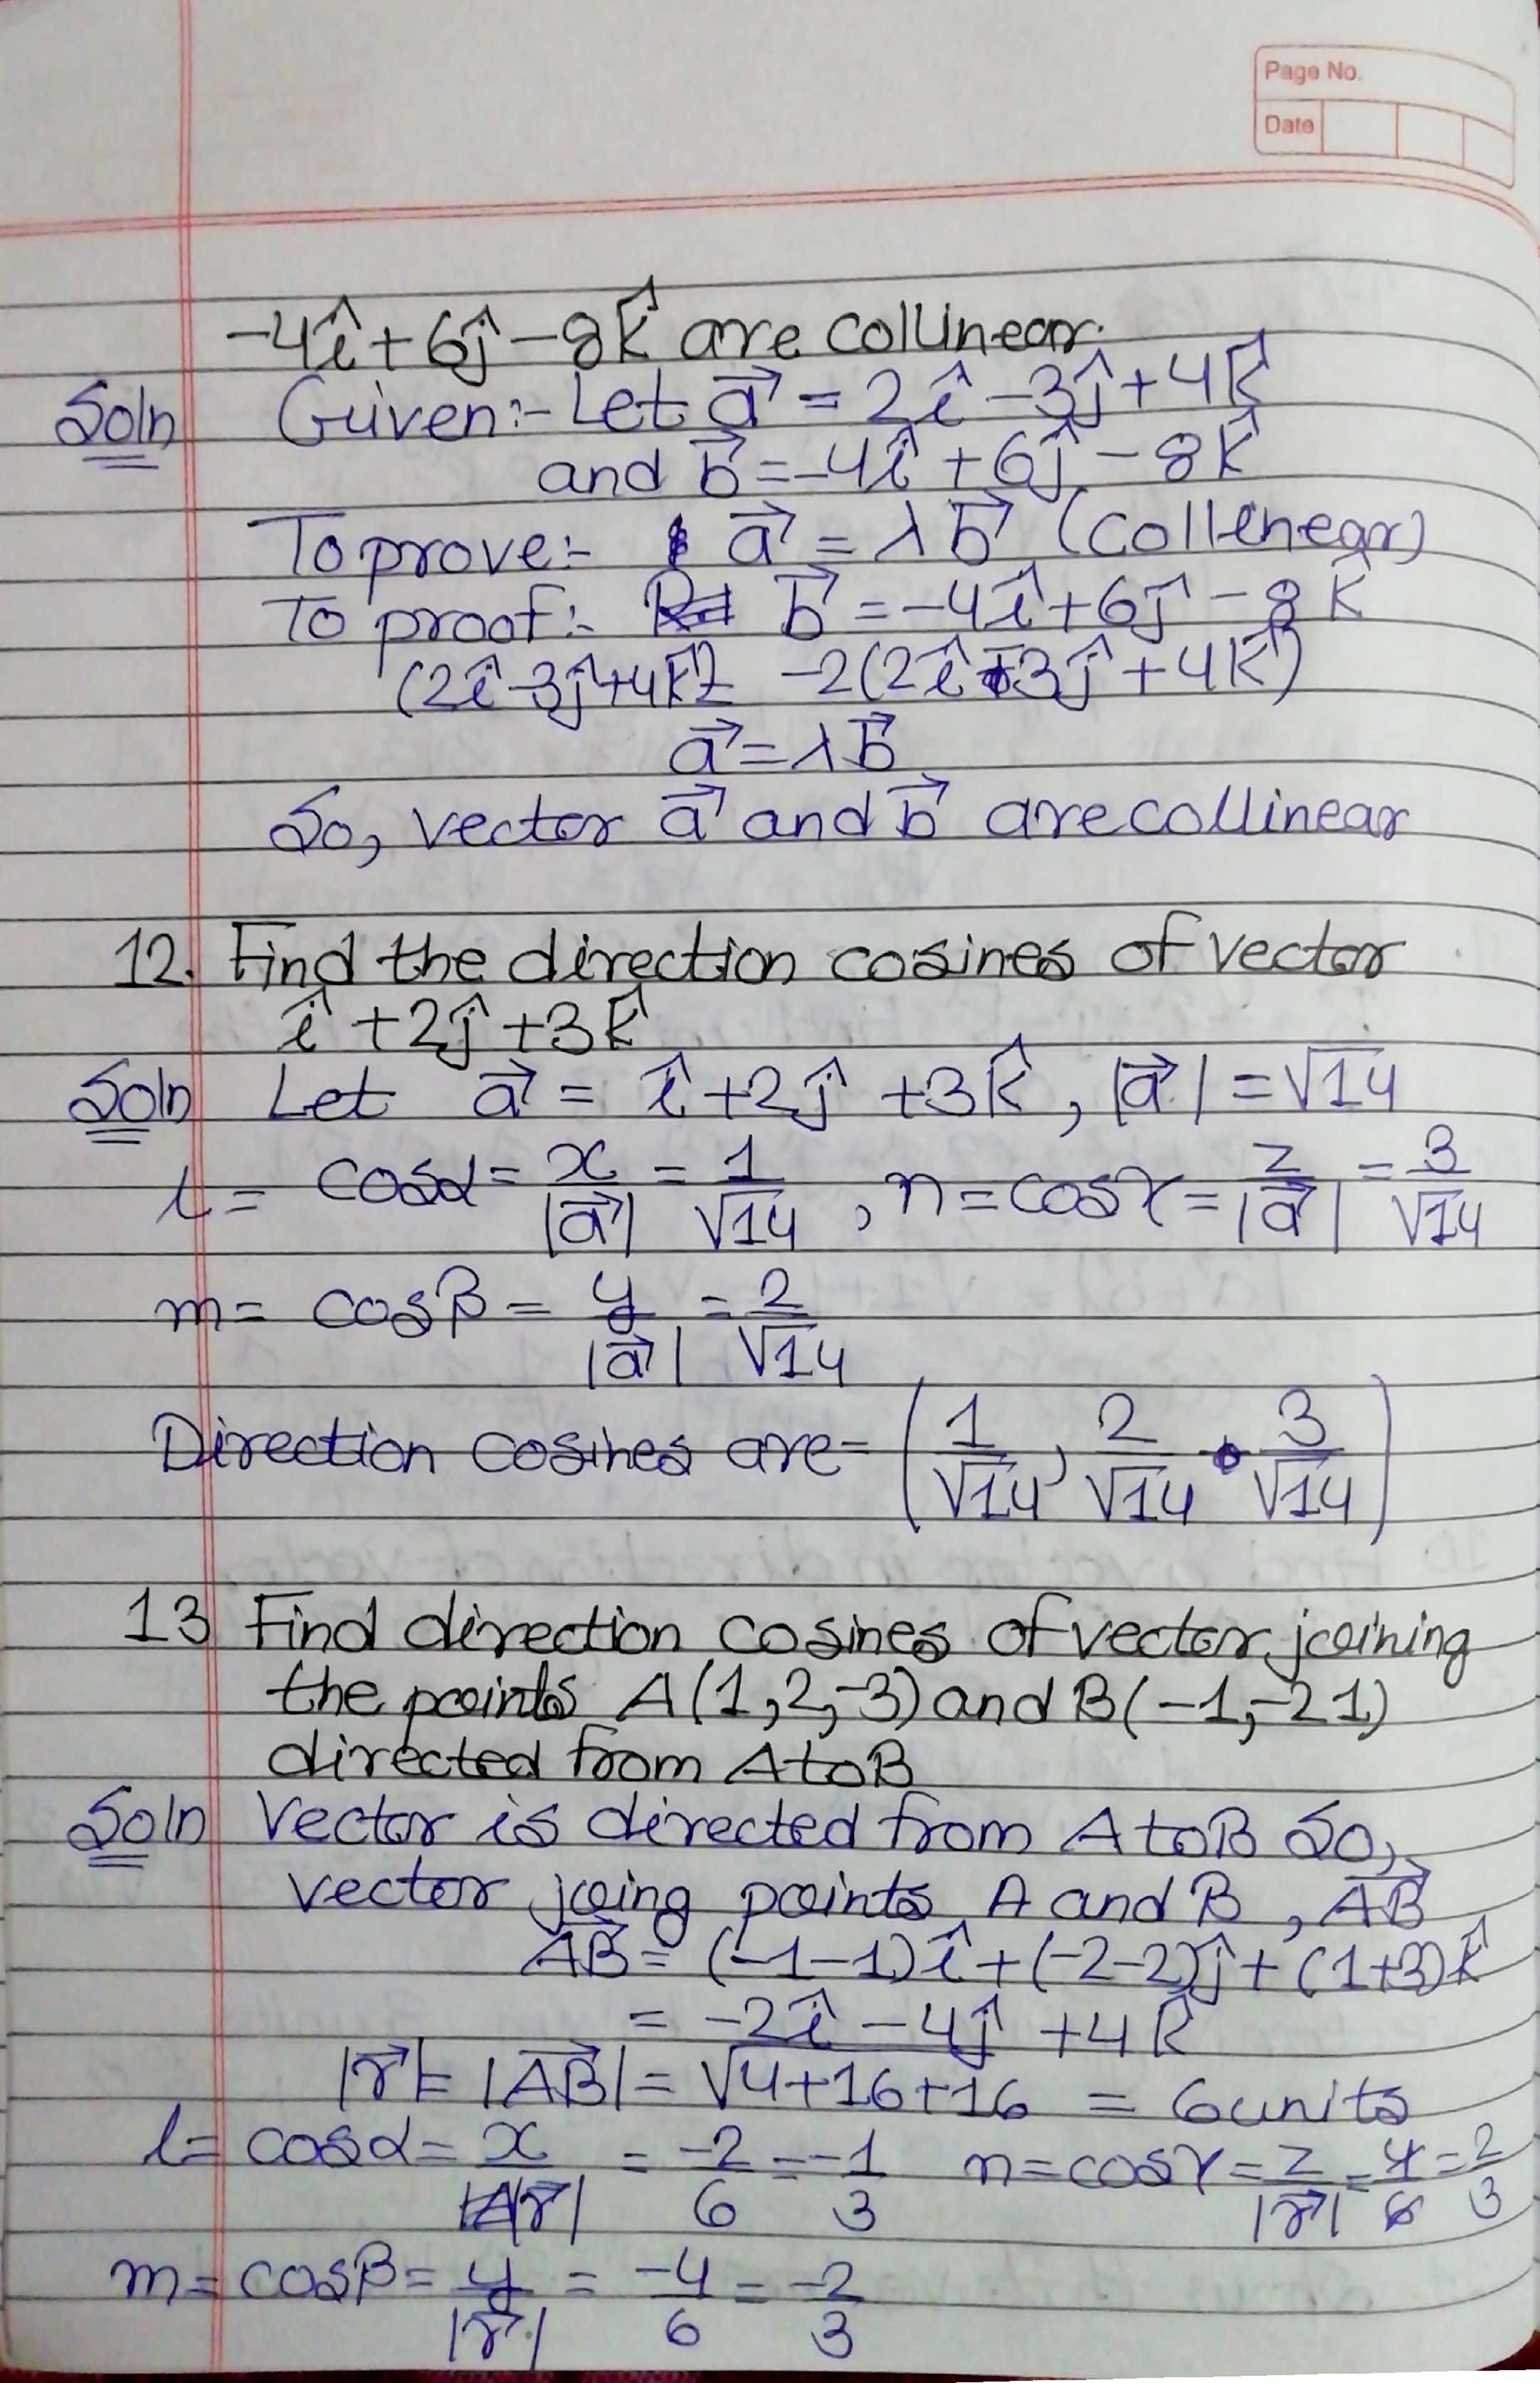 Page No.
Date
-4î+6ĵ-8k̂ are collinear.
Soln Given:- Let a⃗ = 2î-3ĵ+4k̂
and b⃗=-4î+6ĵ-8k̂
To prove:- a⃗ = λb⃗ (collenear)
To proof:- b⃗ = -4î+6ĵ-8k̂
-2(2î-3ĵ+4k̂)
a⃗=λb⃗
So, vector a⃗ and b⃗ are collinear
12. Find the direction cosines of vector
î+2ĵ+3k̂
Soln Let a⃗ = î+2ĵ+3k̂, |a⃗| = √14
l = cosα = x/|a⃗| = 1/√14, n=cosγ = z/|a⃗| = 3/√14
m = cosβ = y/|a⃗| = 2/√14
Direction cosines are- (1/√14, 2/√14, 3/√14)
13 Find direction cosines of vector joining
the points A(1,2,-3) and B(-1,-2 1)
directed from A to B
Soln Vector is directed from A to B So,
vector joing points A and B, A⃗B⃗
A⃗B⃗ = (-1-1)î+(-2-2)ĵ+(1+3)k̂
= -2î-4ĵ+4k̂
|r⃗|= |A⃗B⃗| = √4+16+16 = 6units
l= cosα= x/|r⃗| = -2/6 = -1/3 n=cosγ= z/|r⃗| = 4/6 = 2/3
m= cosβ= y/|r⃗| = -4/6 = -2/3